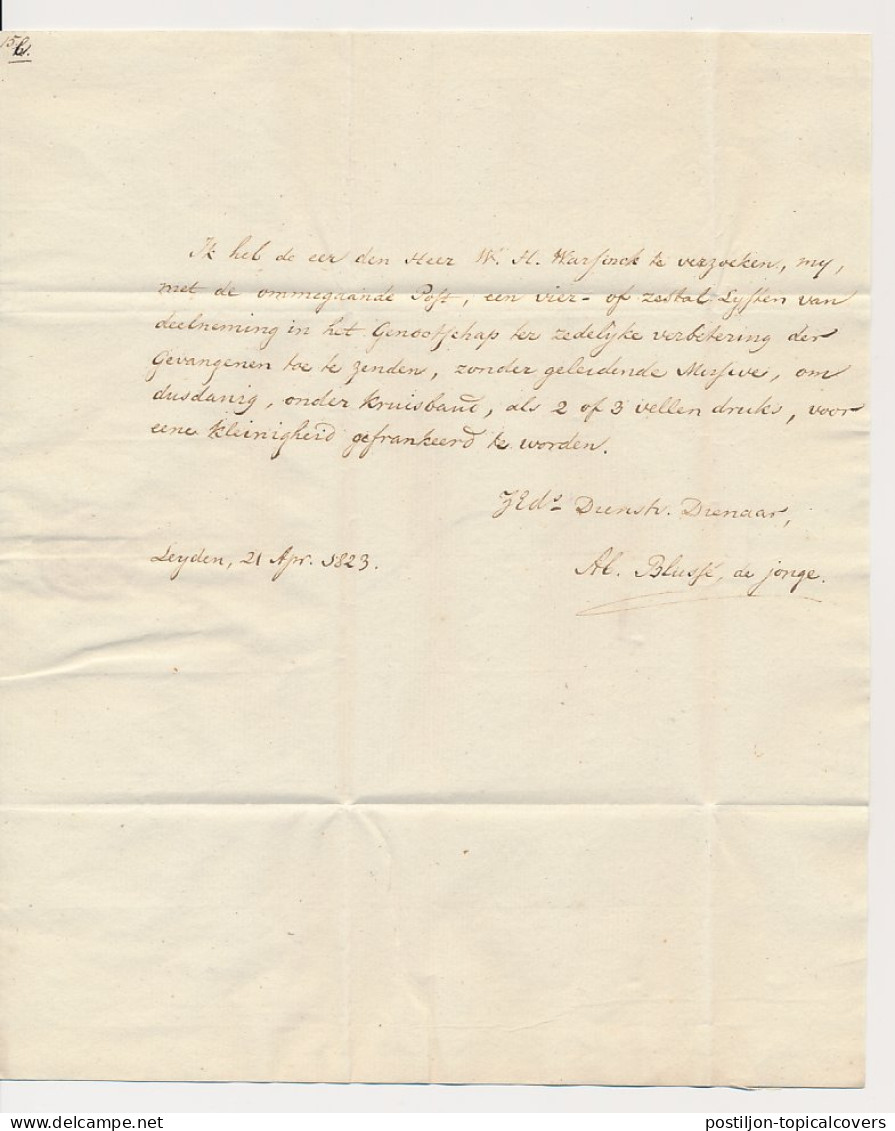 15 b.
Ik heb de eer den Heer Wm. H. Warsinck te verzoeken, my,
met de ommegaande Post, een vier- of zestal Lysten van
deelneming in het Genootschap ter zedelijke verbetering der
Gevangenen toe te zenden, zonder geleidende Missive, om
dusdanig, onder kruisband, als 2 of 3 vellen druks, voor
eene kleinigheid gefrankeerd te worden.
Dienstv. Dienaar,
Leyden, 21 Apr. 1823.
Ab. Blussé, de jonge.
postiljon-topicalcovers